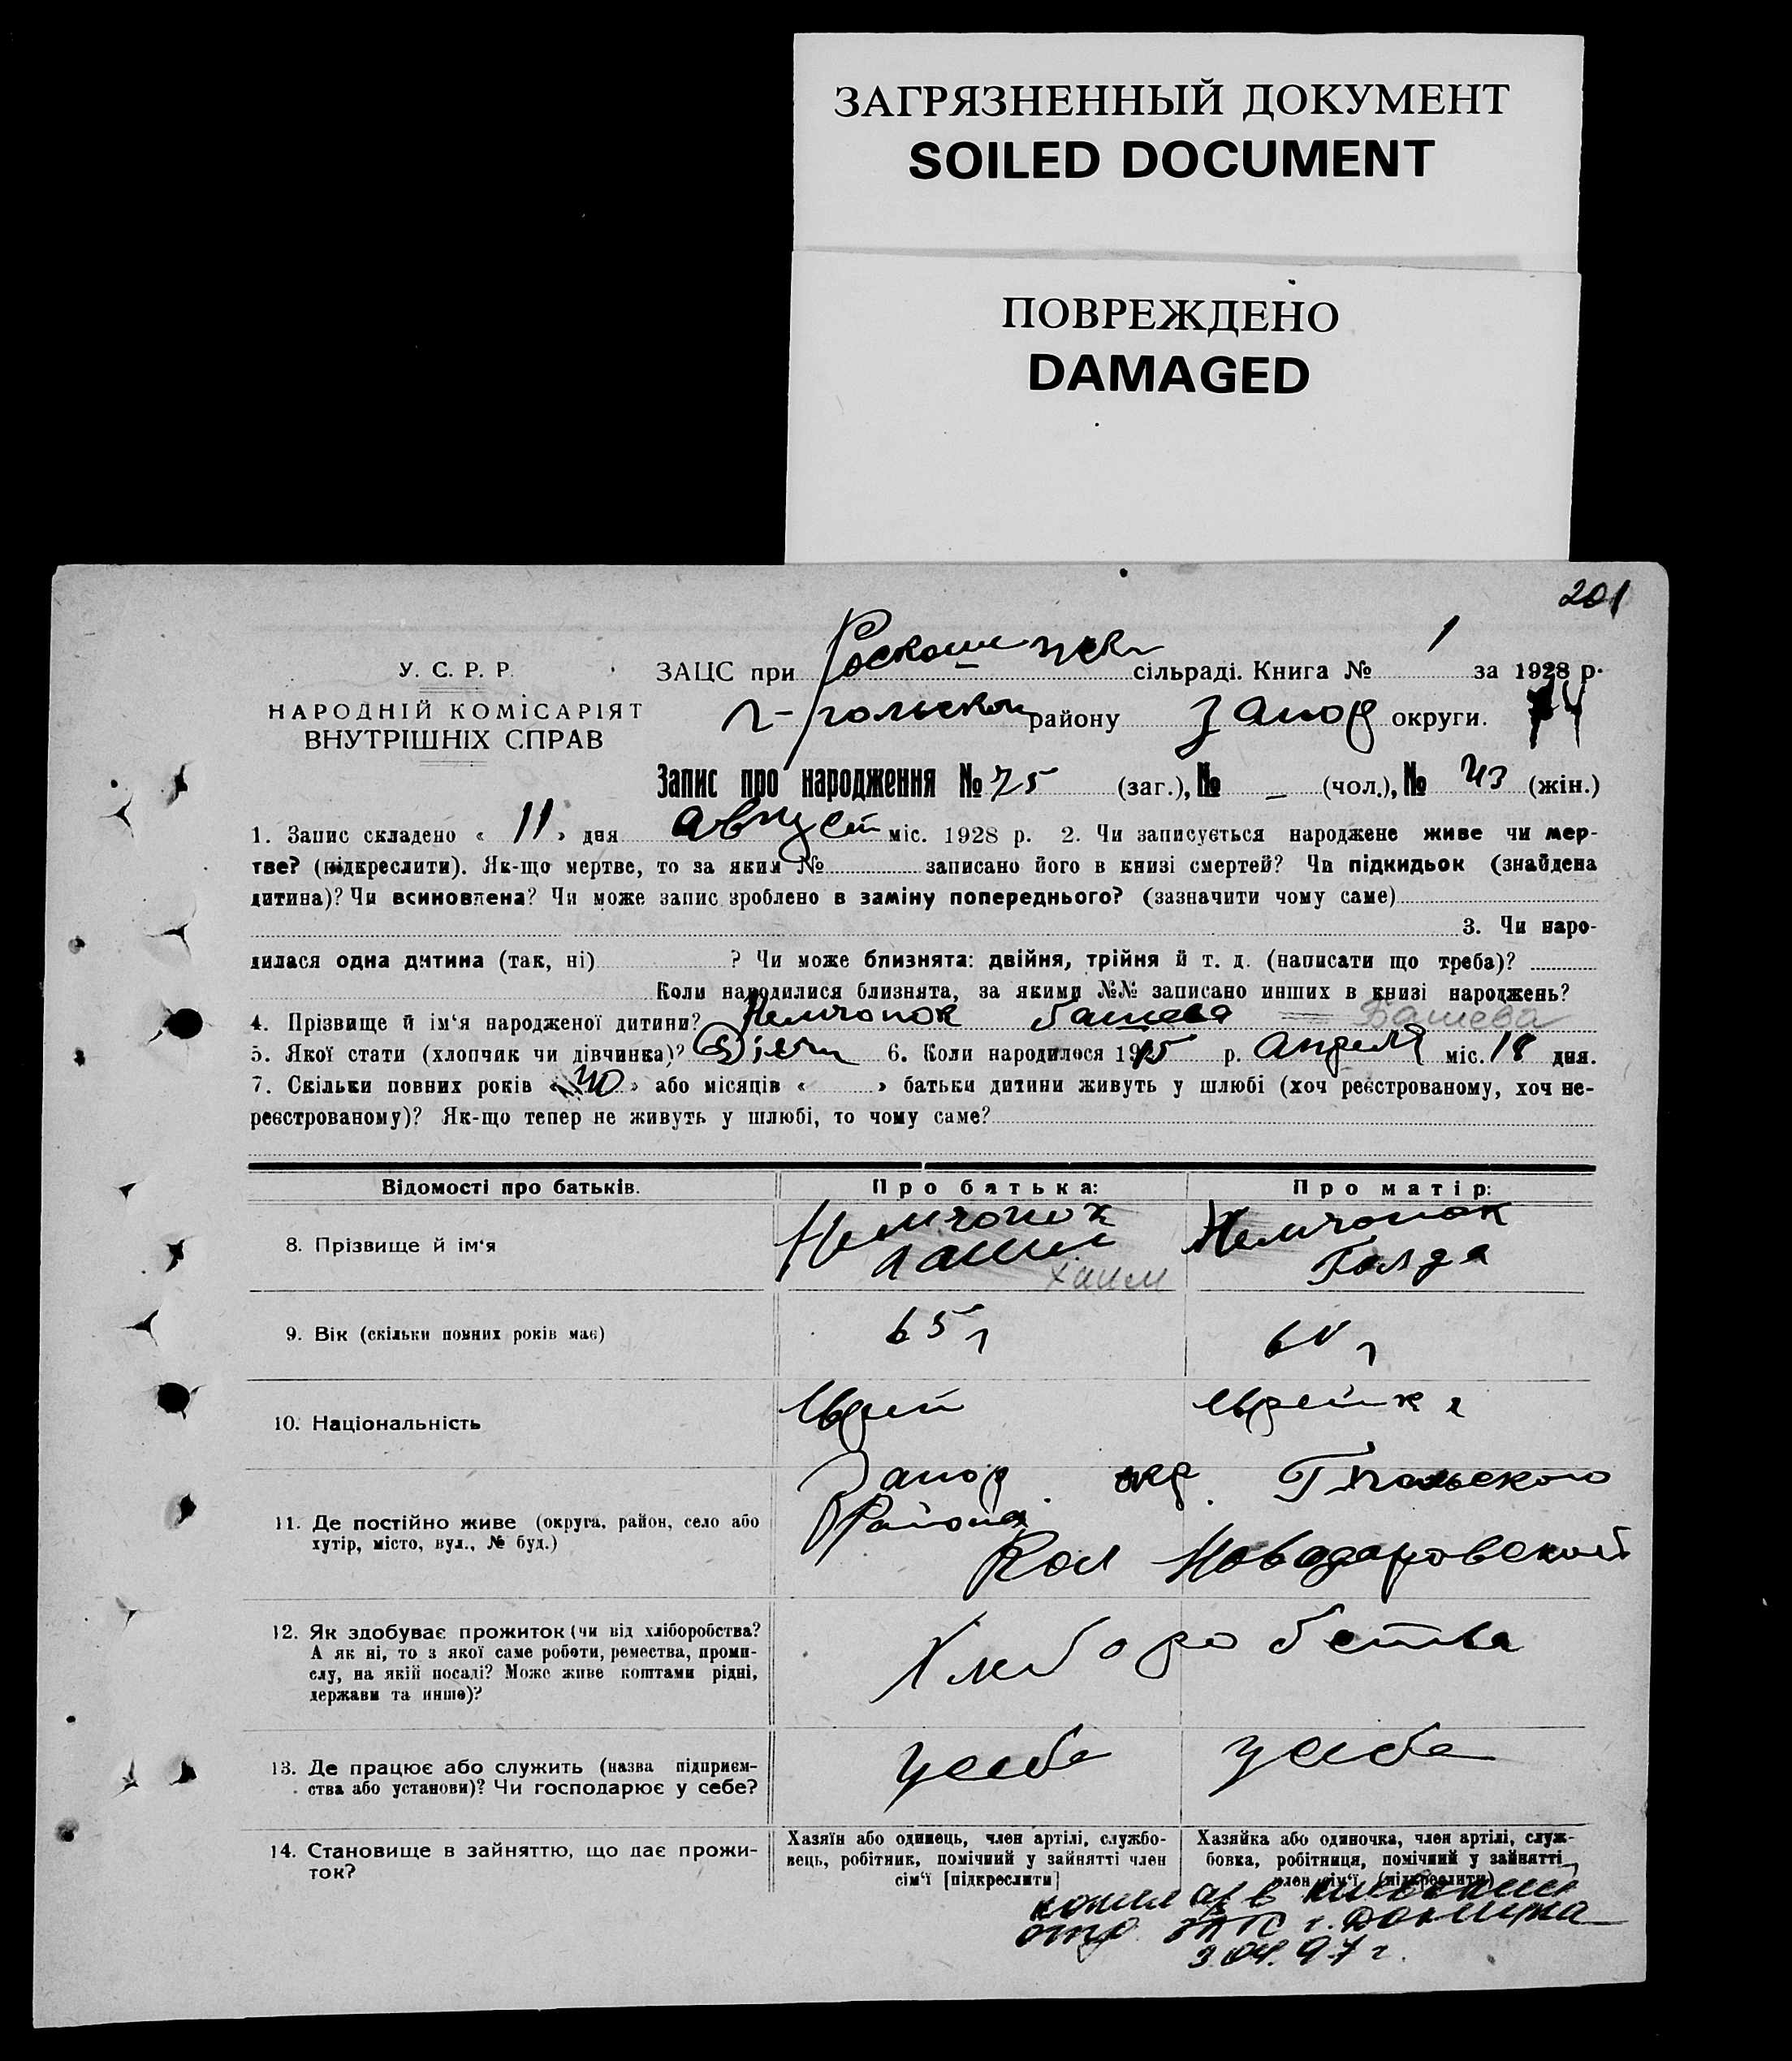 ЗАГРЯЗНЕННЫЙ ДОКУМЕНТ
SOILED DOCUMENT
ПОВРЕЖДЕНО
DAMAGED
201
У. С. Р. Р.
НАРОДНІЙ КОМІСАРІЯТ
ВНУТРІШНІХ СПРАВ
ЗАЦС при сільраді. Книга № 1 за 1928 р.
району Запор округи.
Запис про народження № 75 (заг.), № – (чол.), № 43 (жін.)
1. Запис складено « 11 » дня Август міс. 1928 р. 2. Чи записується народжене живе чи мер-
тве? (підкреслити). Як-що мертве, то за яким № записано його в книзі смертей? Чи підкидьок (знайдена
дитина)? Чи всиновлена? Чи може запис зроблено в заміну попереднього? (зазначити чому саме)
3. Чи наро-
дилася одна дитина (так, ні) ? Чи може близнята: двійня, трійня й т. д. (написати що треба)?
Коли народилися близнята, за якими №№ записано инших в книзі народжень?
4. Прізвище й ім‘я народженої дитини? Немчонок Башева Башева
5. Якої стати (хлопчик чи дівчинка)? 6. Коли народилося 1915 р. Апреля міс. 18 дня.
7. Скільки повних років « 40 » або місяців « » батьки дитини живуть у шлюбі (хоч реєстрованому, хоч не-
реєстрованому)? Як-що тепер не живуть у шлюбі, то чому саме?
Відомості про батьків. Про батька: Про матір:
8. Прізвище й ім‘я Немчонок Хаим Немчонок Голда
9. Вік (скільки повних років має) 65 г
10. Національність Еврей Еврейка
11. Де постійно живе (округа, район, село або
хутір, місто, вул., № буд.)
Запор окр.
Района
Кол Новодаровской
12. Як здобуває прожиток (чи від хліборобства?
А як ні, то з якої саме роботи, ремества, проми-
слу, на якій посаді? Може живе коштами рідні,
держави та инше)?
Хлиборобства
13. Де працює або служить (назва підприєм-
ства або установи)? Чи господарює у себе?
у себе у себе
14. Становище в зайняттю, що дає прожи-
ток?
Хазяїн або одинець, член артілі, службо-
вець, робітник, помічний у зайнятті член
сім‘ї [підкреслити]
Хазяйка або одиночка, член артілі, служ-
бовка, робітниця, помічний у зайнятті
член сім‘ї (підкреслити)
3.04.97 г.